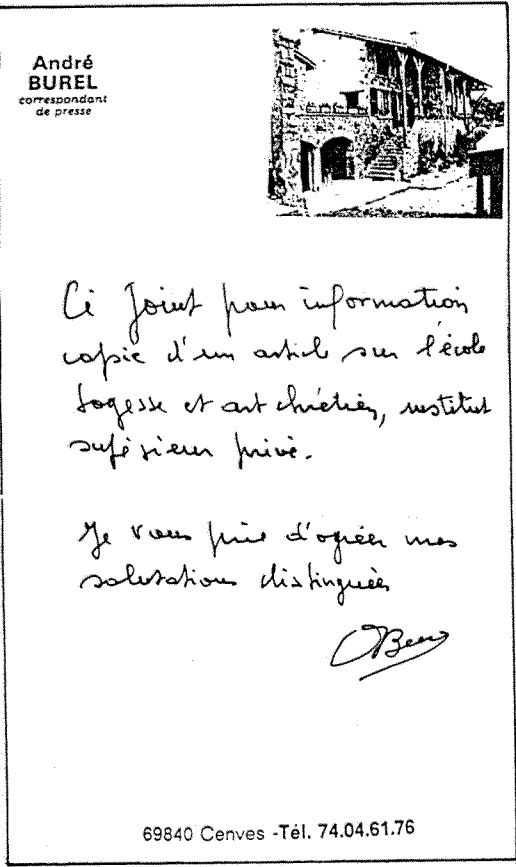 André
BUREL
correspondant
de presse
Ci Joint pour information
copie d'un article sur l'école
Sagesse et art chrétien, institut
supérieur privé.
Je vous prie d'agréer mes
salutations distinguées
69840 Cenves - Tél. 74.04.61.76